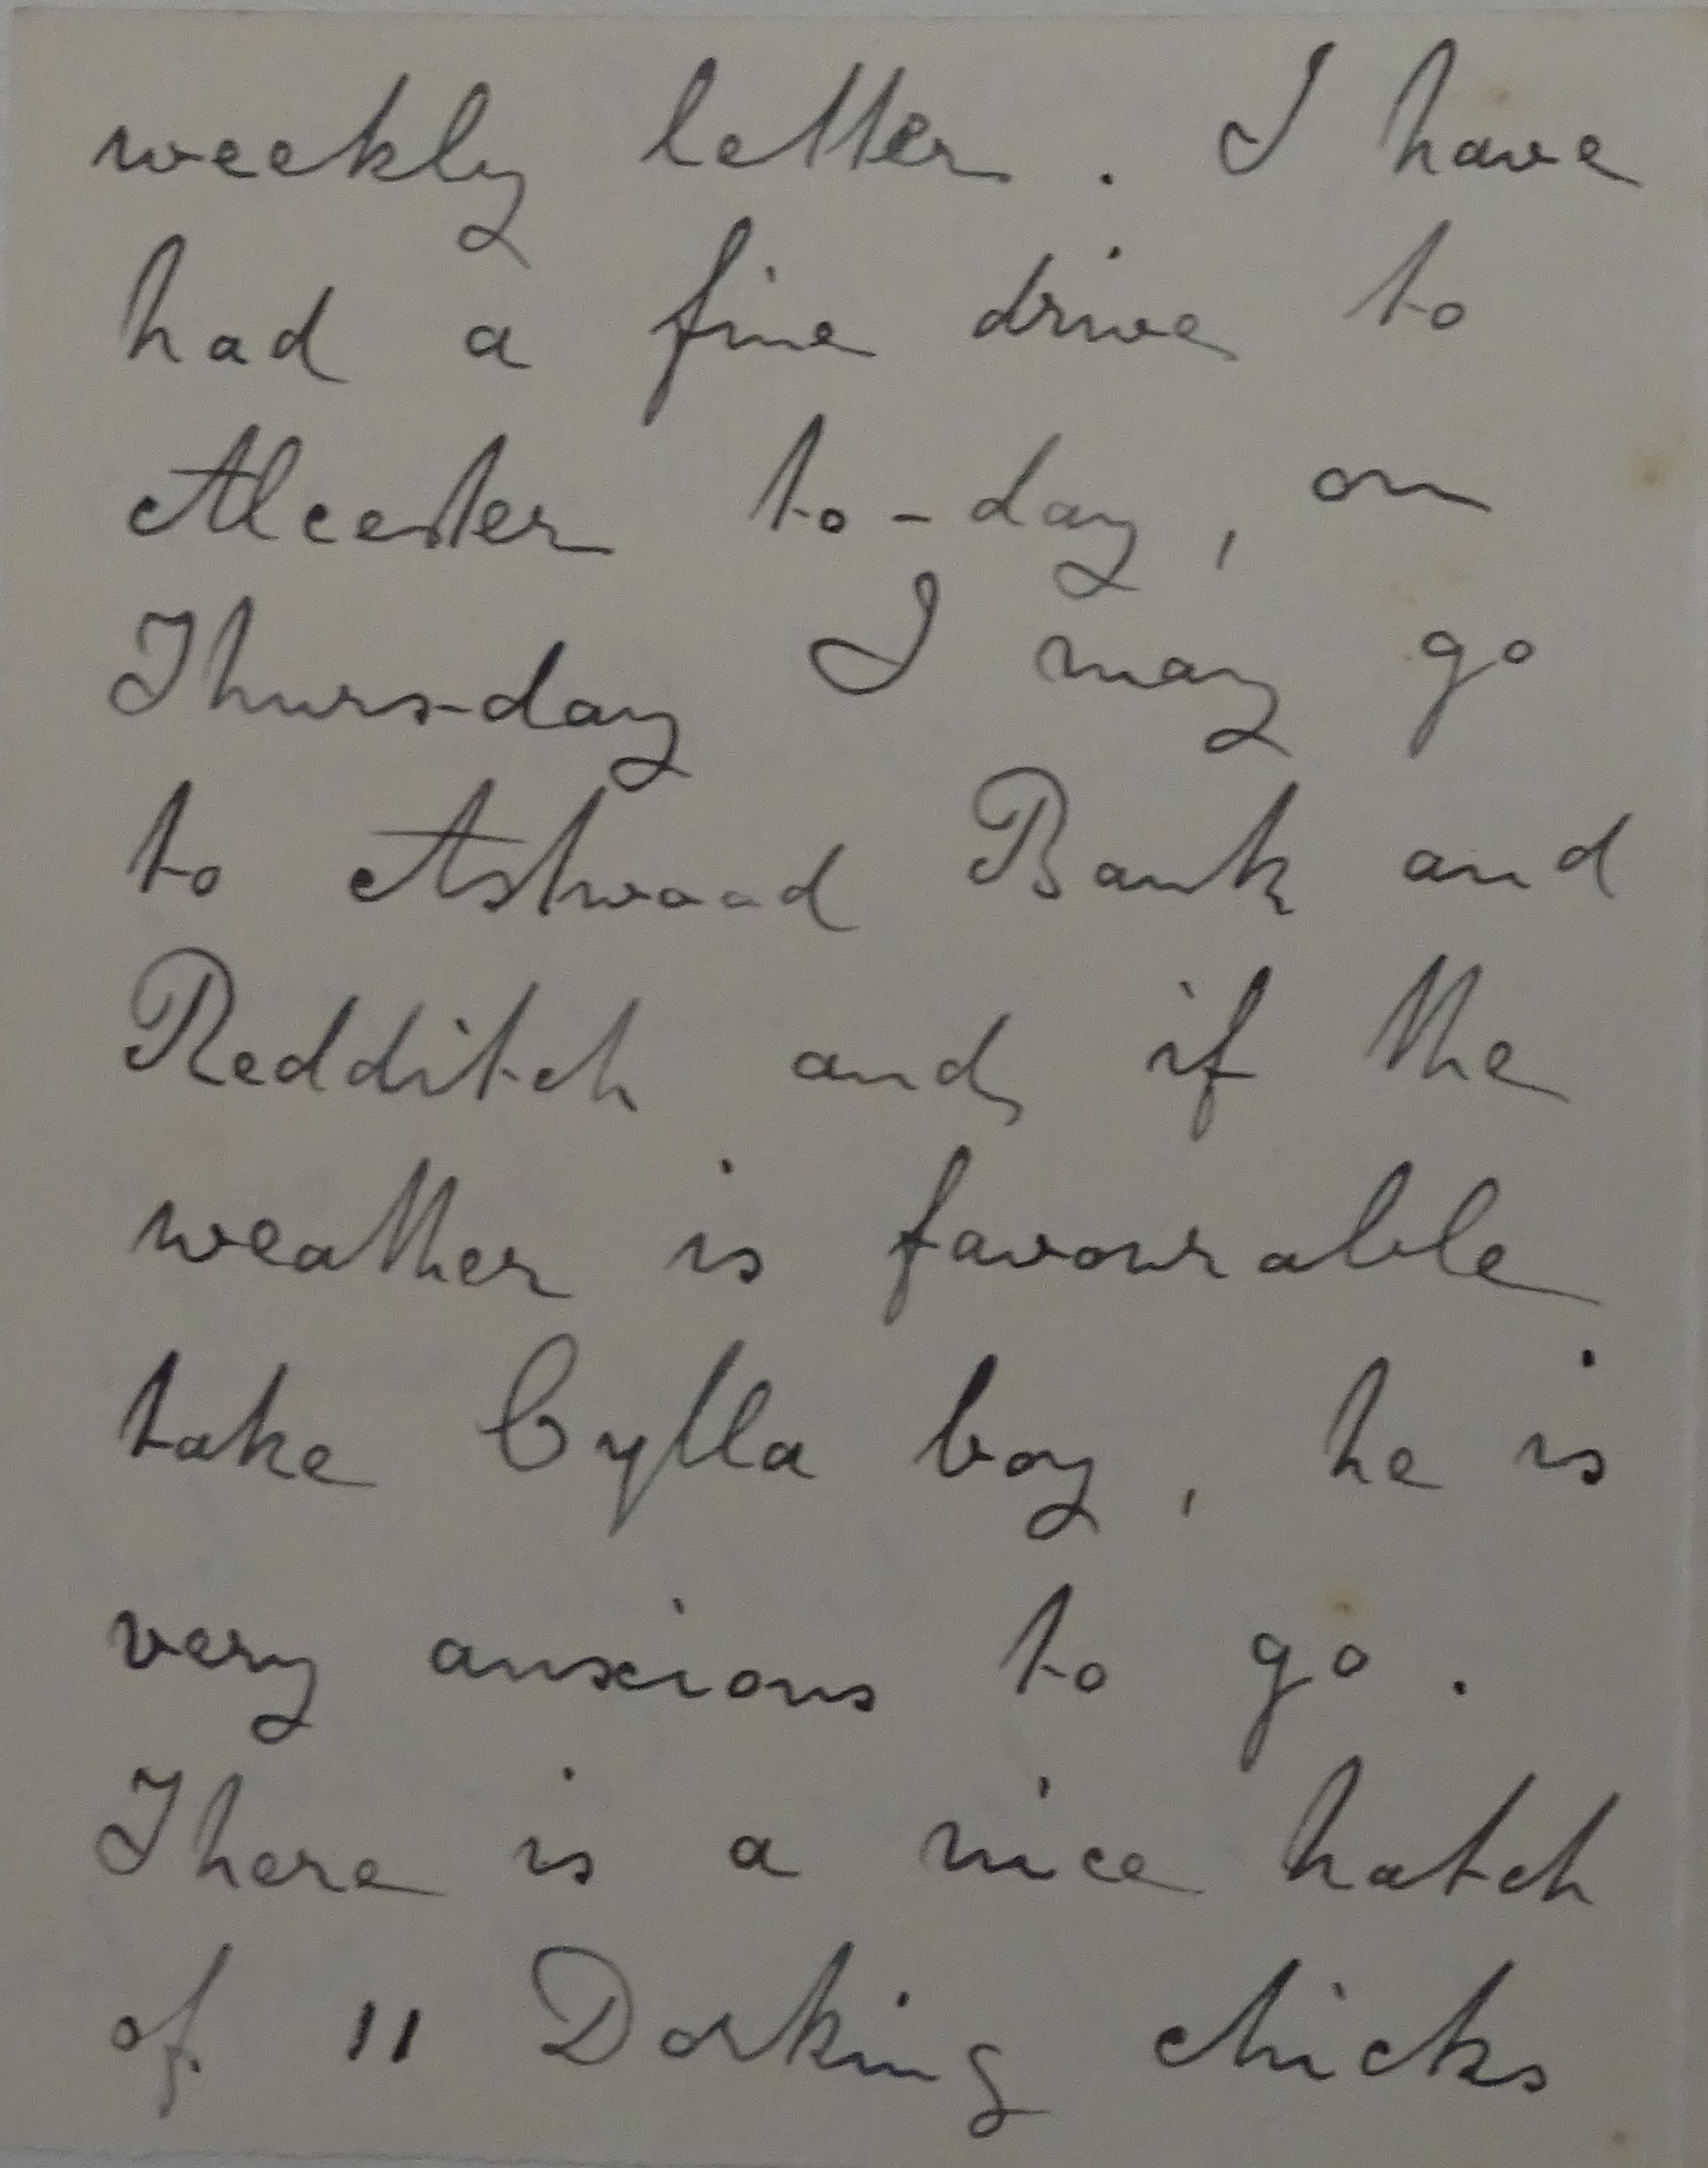 weekly letter. I have
had a fine drive to
Alcester to-day, on
Thurs-day I may go
to Astwood Bank and
Redditch and, if the
weather is favourable
take Cylla boy, he is
very anxious to go.
There is a nice hatch
of 11 Dorking chicks